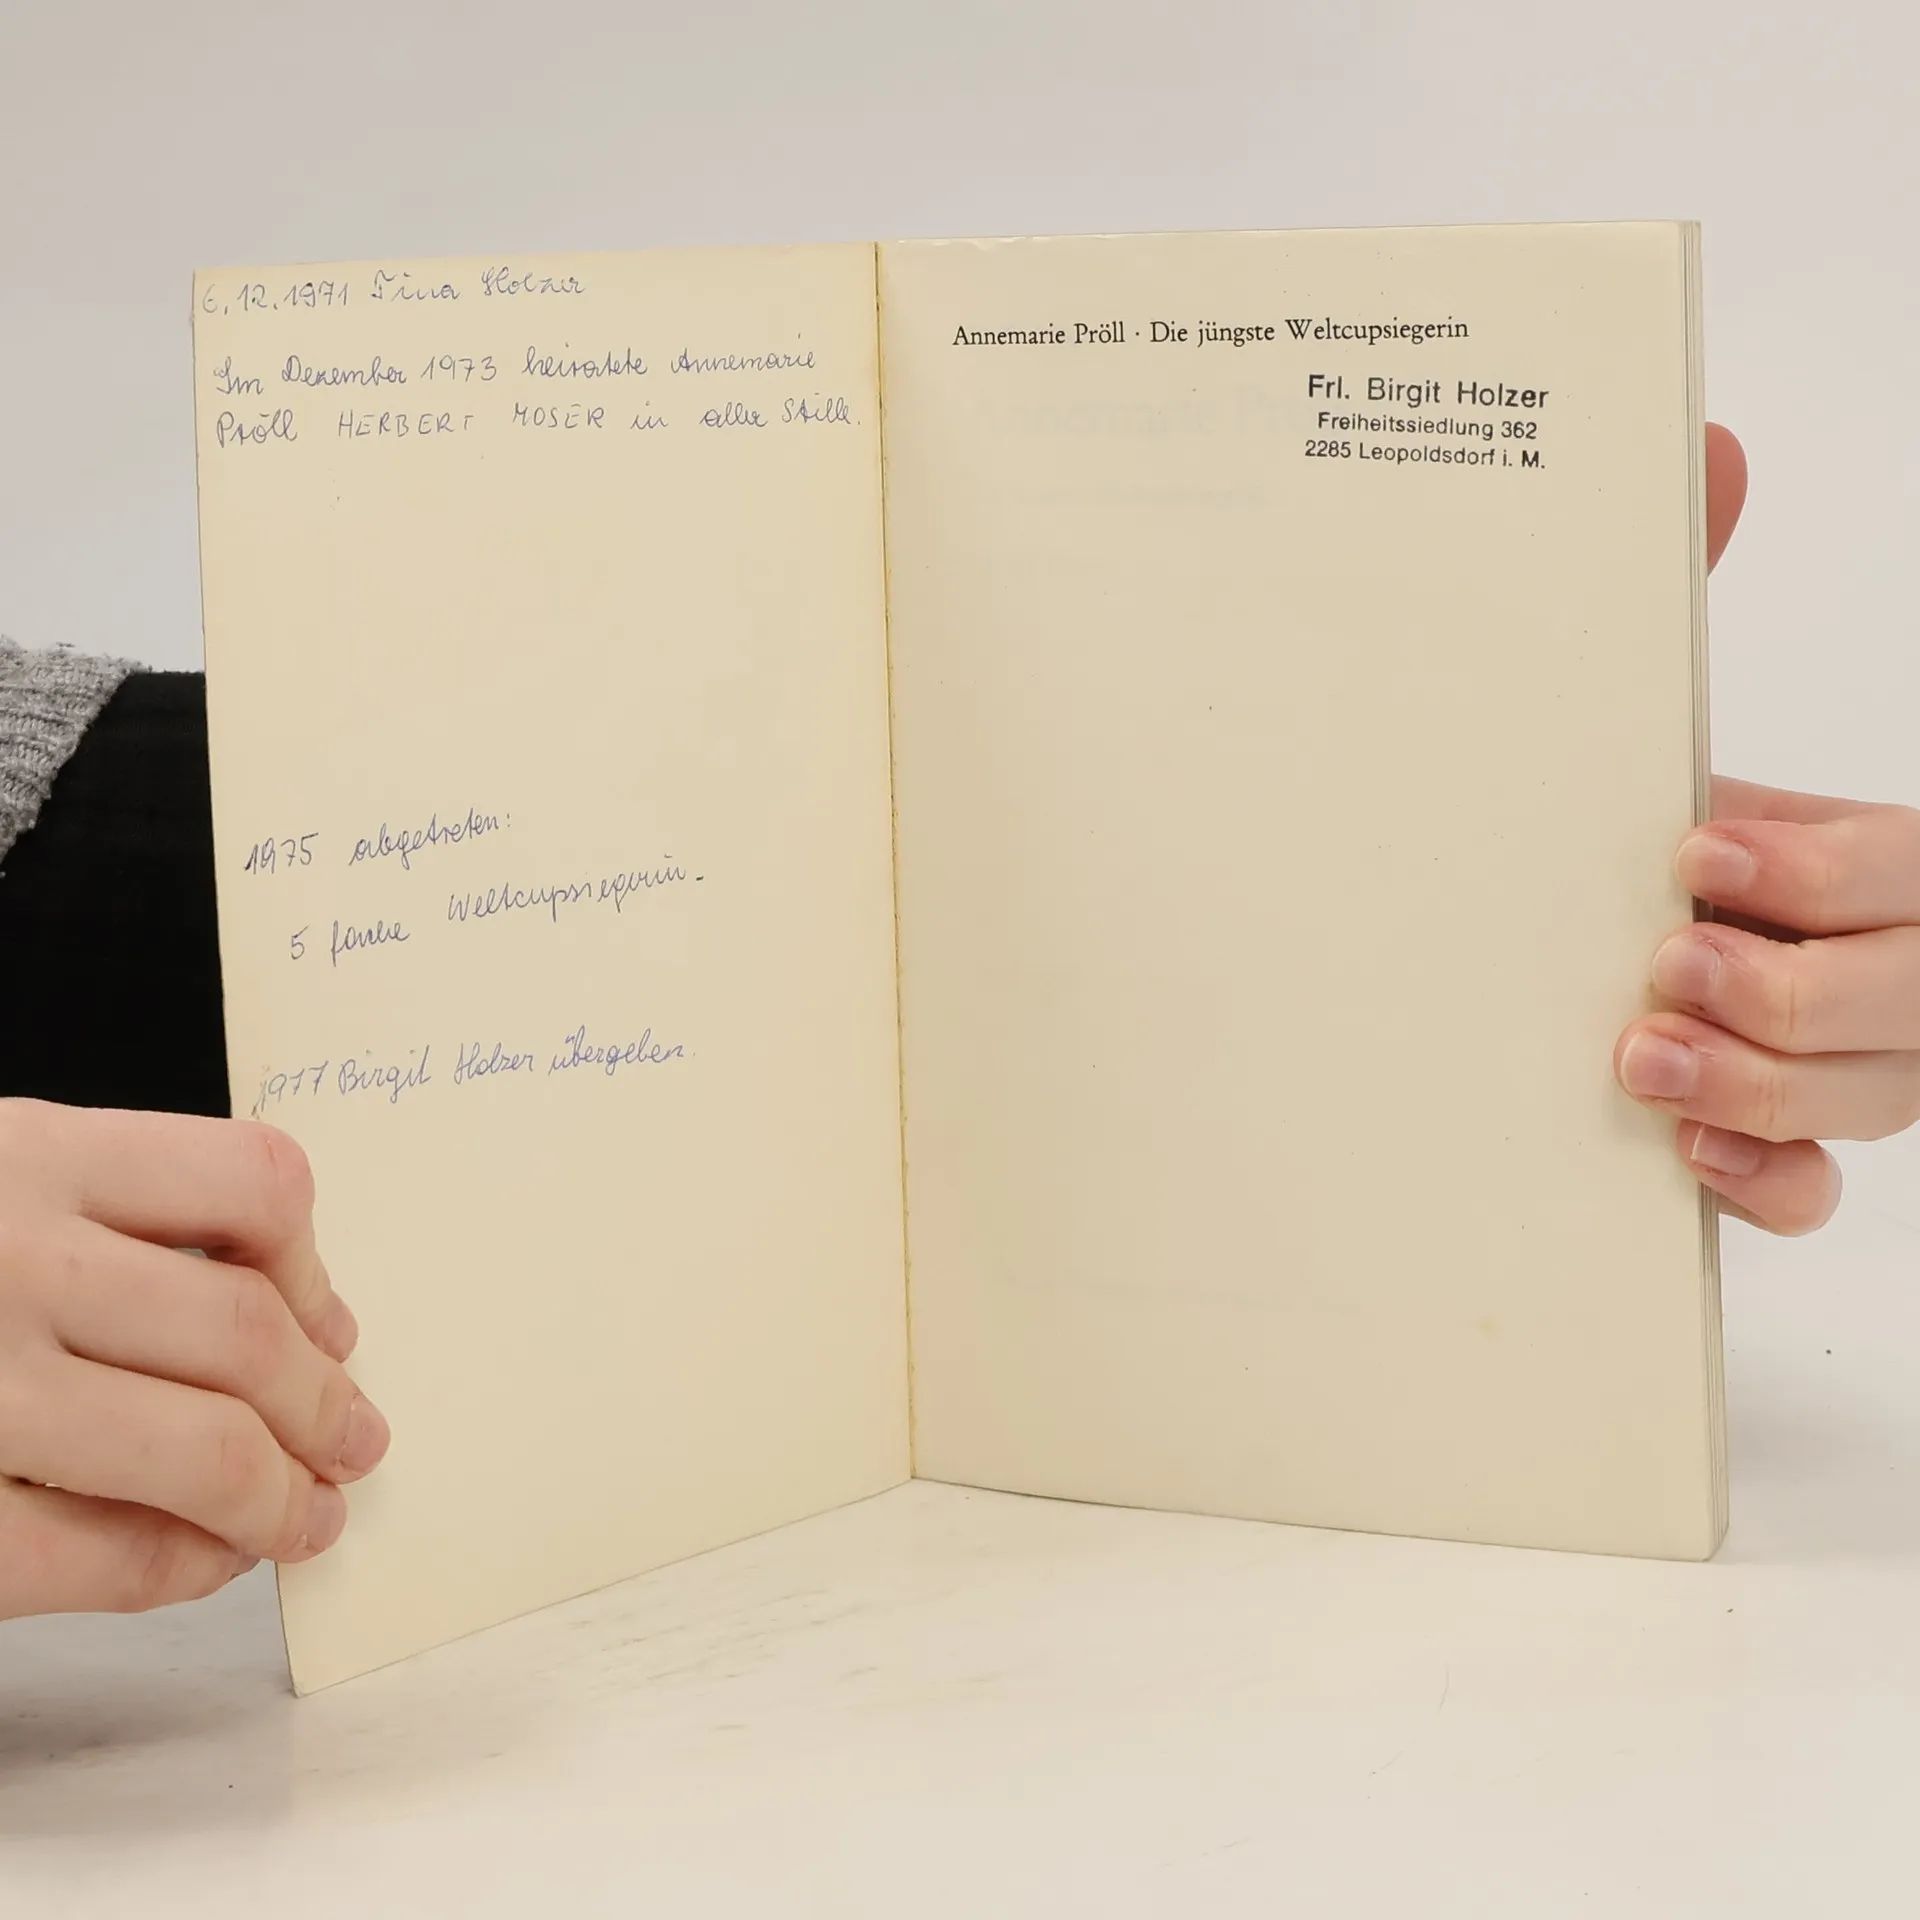 6.12.1971 Tina Holzer
Im Dezember 1973 heiratete Annemarie
Pröll HERBERT MOSER in aller Stille.
1975 abgetreten:
5 fache Weltcupsiegerin-
1977 Birgit Holzer übergeben.
Annemarie Pröll · Die jüngste Weltcupsiegerin
Frl. Birgit Holzer
Freiheitssiedlung 362
2285 Leopoldsdorf i. M.